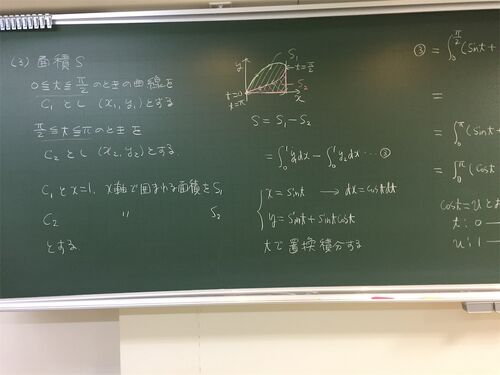 (3) 面積 S
0≦t≦π/2 のときの曲線を
C₁ とし (x₁, y₁) とする
π/2≦t≦π のときを
C₂ とし (x₂, y₂) とする
C₁ と x=1, x軸で囲まれる面積を S₁
C₂ 〃 S₂
とする
y
S₁
t=π/2
S₂
t=0
t=π
x
S = S₁ - S₂
= ∫₀¹ y₁dx - ∫₀¹ y₂dx … ③
x = sint → dx = costdt
y = sint + sintcost
tで置換積分する
③ = ∫₀^(π/2) (sint +
=
= ∫₀^π (sint
(cost
cost = u と
t : 0
u : 1